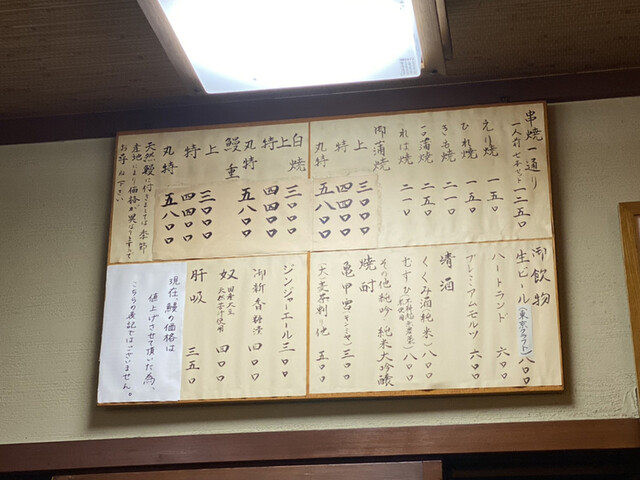 串焼一通り
一人前 七本セット 一二五〇
えり焼 一五〇
ひれ焼 一五〇
きも焼 二一〇
一口蒲焼 二五〇
れば焼 二一〇
御蒲焼
上 三〇〇〇
特 四四〇〇
丸特 五八〇〇
白焼
上 三〇〇〇
特 四四〇〇
丸特 五八〇〇
鰻重
上 三〇〇〇
特 四四〇〇
丸特 五八〇〇
天然鰻に付きましては季節
産地により価格が異なりますので
お尋ね下さい
御飲物
生ビール（東京クラフト） 八〇〇
ハートランド 六〇〇
プレミアムモルツ 六〇〇
清酒
くくみ酒（純米） 八〇〇
七すひ 八〇〇
その他 純吟 純米大吟醸
焼酎
亀甲宮（キンミヤ） 三〇〇
（大）麦 茶割り 他 五〇〇
ジンジャーエール 三〇〇
御新香 糠漬 四〇〇
奴 国産大豆 天然にがり使用 四〇〇
肝吸 三五〇
現在、鰻の価格は
値上げさせて頂いた為、
こちらの表記ではございません。